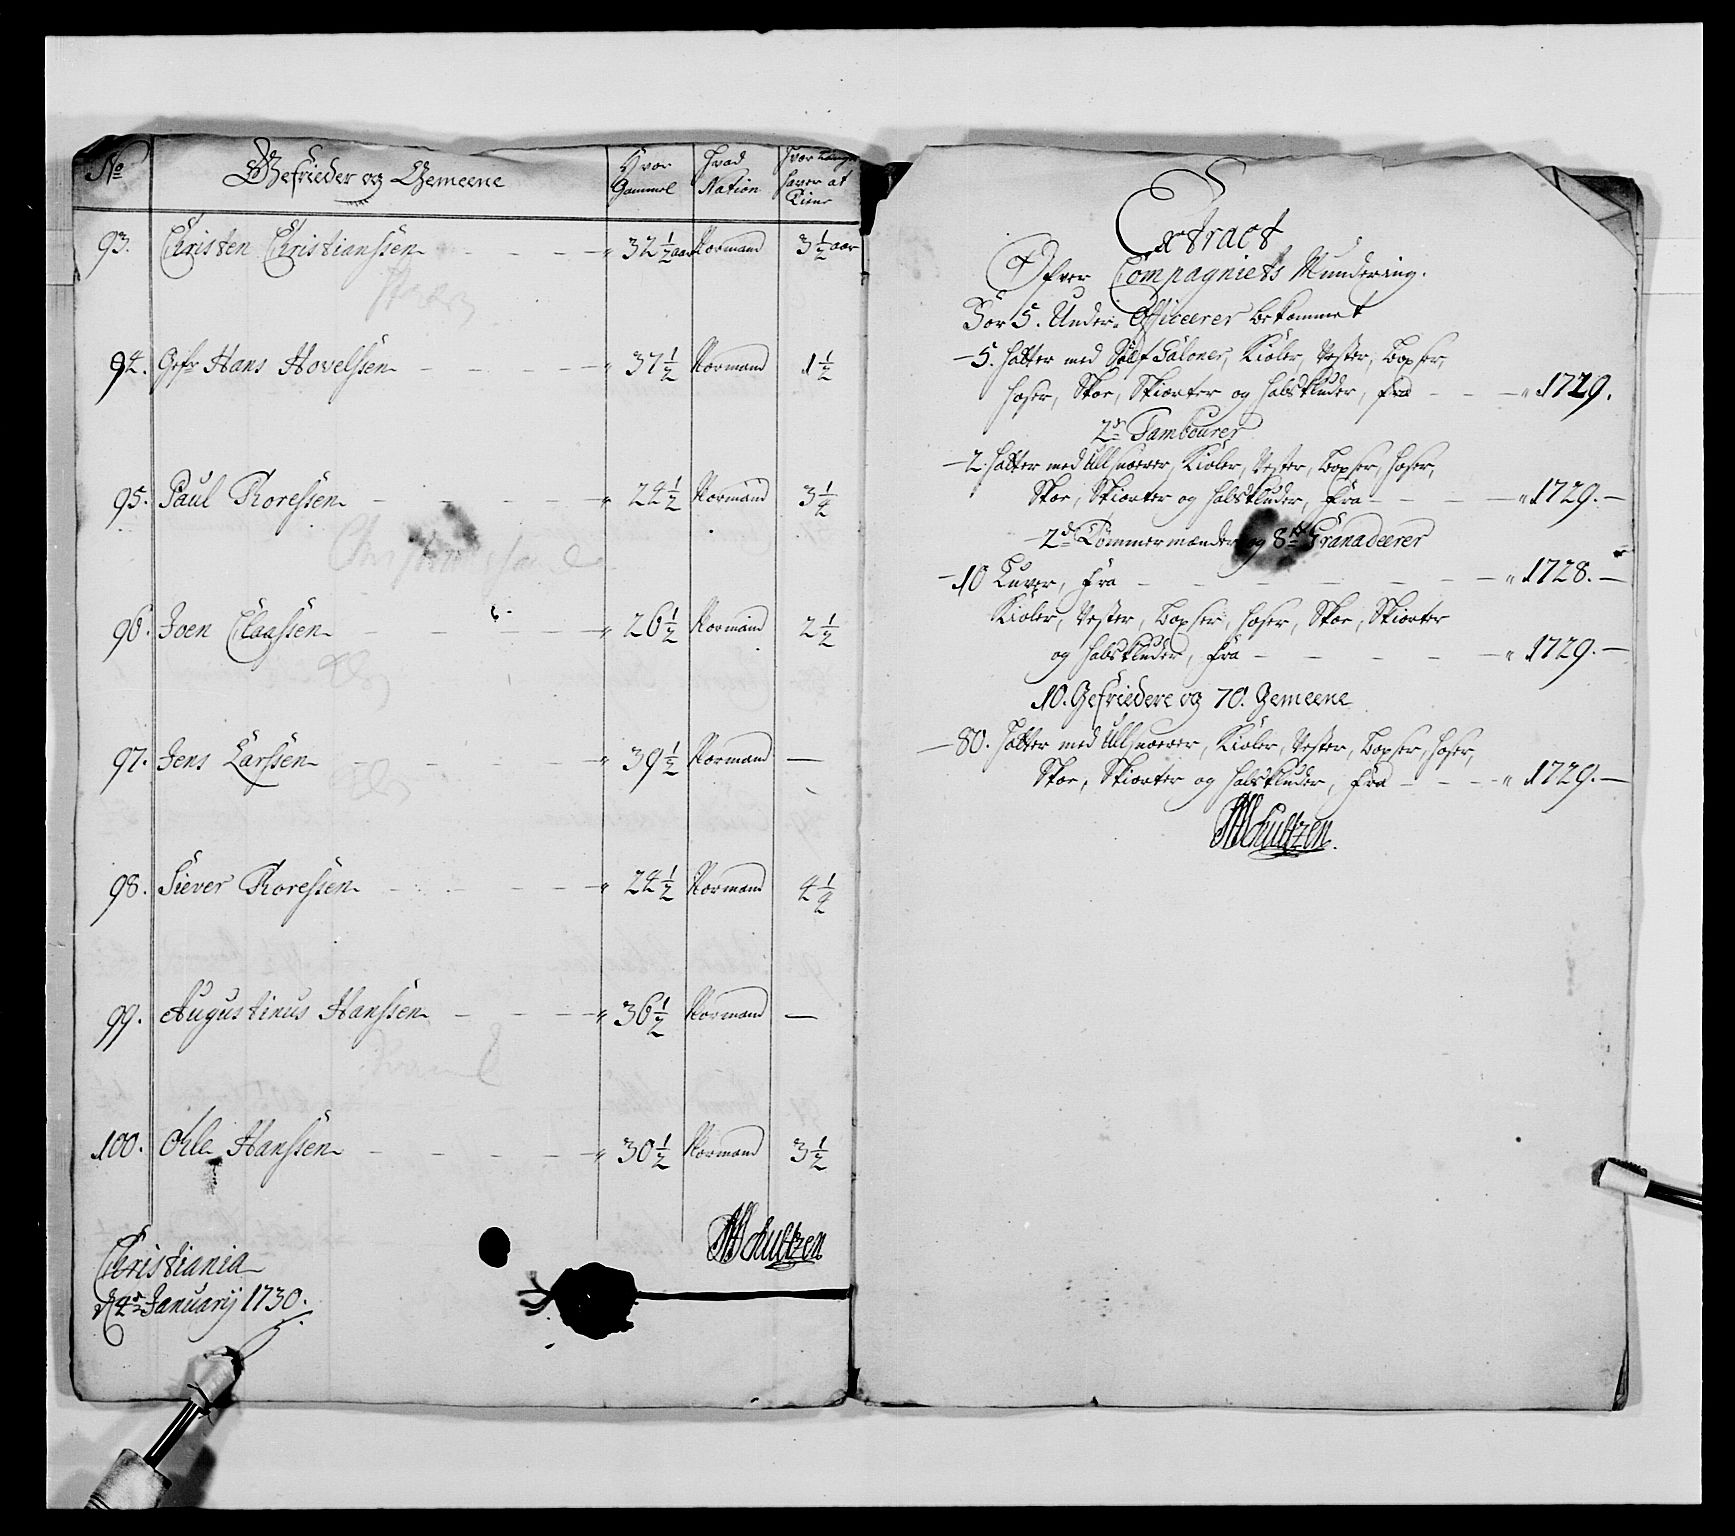 No
Gefrieder og Gemeene
Hvor Gammel
Hvad Nation
Hvor Længe haver at Tiene
93. Christen Christianssen - - - 32 1/2 aar Normand 3 1/2 aar
94. Gefr Hans Hovelssen - - - 37 1/2 Normand 1 1/2
95. Paul Thoressen - - - 24 1/2 Normand 3 1/4
Christiansand
96. Joen Claassen - - - 26 1/2 Normand 2 1/2
97. Jens Larssen - - - 39 1/2 Normand —
98. Siever Thoressen - - - 24 1/2 Normand 4 1/4
99. Augustinus Hanssen - - - 36 1/2 Normand —
100. Ohle Hanssen - - - 30 1/2 Normand 3 1/2
Schultzen
Christiania
d 4de January 1730.
Extract
Ofver Compagniets Mundering.
For 5. Under-Officerer bekommet
- 5. Hatter med Sølf Galoner, Kioler, Vester, Boxser,
Hoser, Skoe, Skiorter og Halsklude, fra - - - 1729.
2de Tambourer
- 2. Hatter med Ullsnoerer, Kioler, Vester, Boxser, Hoser,
Skoe, Skiorter og Halsklude, fra - - - 1729. -
2de Tømmermænder og 8te Granadeerer
- 10 Luer, fra - - - 1728. -
Kioler, Vester, Boxser, Hoser, Skoe, Skiorter
og Halsklude, fra - - - 1729. -
10. Gefriedere og 70. Gemeene
- 80. Hatter med Ullsnoerer, Kioler, Vester, Boxser, Hoser,
Skoe, Skiorter og Halsklude, fra - - - 1729. -
Schultzen.